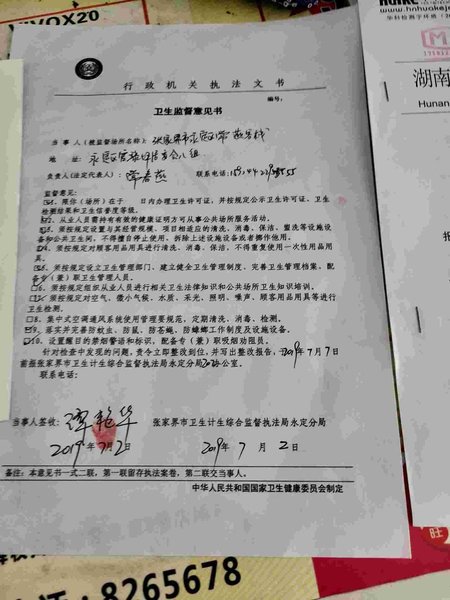 VOX20
行政机关执法文书
编号:
卫生监督意见书
当事人(被监督场所名称):张家界市永定区
地址:永定区
负责人(法定代表人): 联系电话:
监督意见:
1、限你(场所)在于 日内办理卫生许可证,并按规定公示卫生许可证、卫生
检测结果和卫生信誉度等级。
2、从业人员需持有有效的健康证明方可从事公共场所服务活动。
3、须按规定设置与其经营规模、项目相适应的清洗、消毒、保洁、盥洗等设施设
备和公共卫生间,不得擅自停止使用、拆除上述设施设备或者挪作他用。
4、须按规定对顾客用品用具进行清洗、消毒、保洁、不得重复使用一次性用品用
具。
5、须按规定设立卫生管理部门、建立健全卫生管理制度、完善卫生管理档案,配
备专(兼)职卫生管理人员。
□6、须按规定组织从业人员进行相关卫生法律知识和公共场所卫生知识培训。
7、须按规定对空气、微小气候、水质、采光、照明、噪声、顾客用品用具等进行
卫生检测。
□8、集中式空调通风系统使用管理要规范,定期清洗、消毒、检测。
9、落实并完善防蚊虫、防鼠、防苍蝇、防蟑螂工作制度及设施设备。
10、设置醒目的禁烟警语和标识,配备专(兼)职吸烟劝阻员。
针对检查中发现的问题,责令立即整改到位,并写出整改报告,于2019年7月7日
前报张家界市卫生计生综合监督执法局 办公室。
联系电话:
当事人签收:谭艳华 张家界市卫生计生综合监督执法局永定分局
2019年7月2日 2019年7月2日
备注:本意见书一式二联,第一联留存执法案卷,第二联交当事人。
中华人民共和国国家卫生健康委员会制定
8265678
www.hnhuakeje
华科检测字环境
湖南
Hunan
报
旺